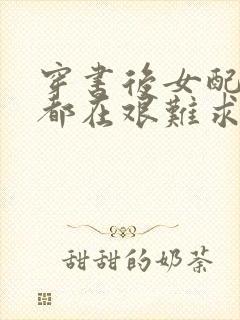 穿書後女配
都在艱難求
甜甜的奶茶